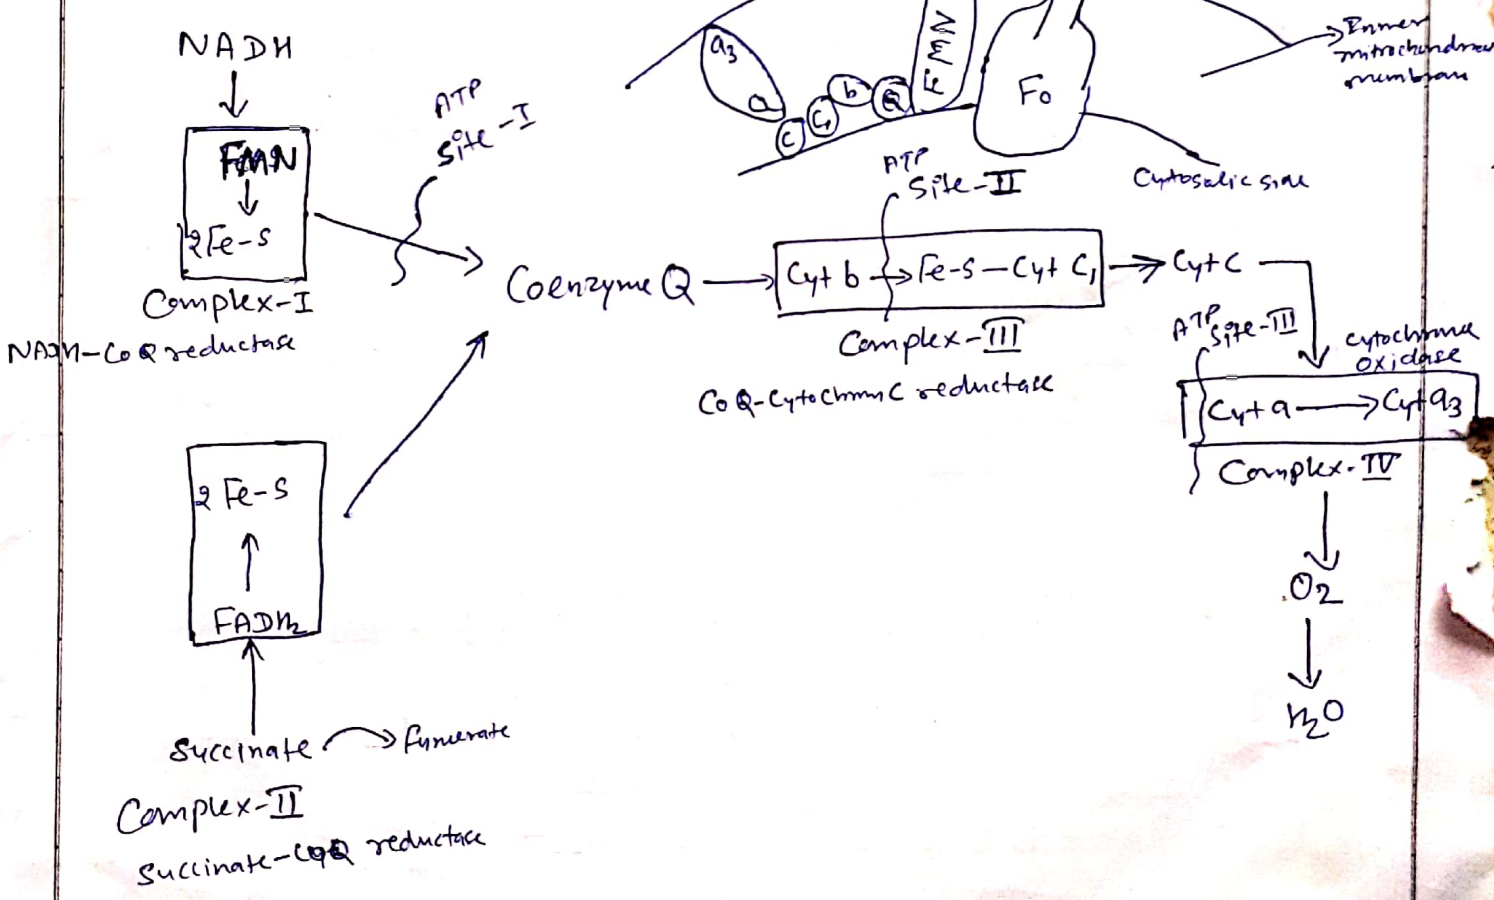 NADH
FMN
2Fe-S
Complex-I
NADH-CoQ reductase
ATP
Site-I
a3
a
C
C1
b
Q
FMN
Fo
Inner
mitochondrial
membran
Cytosolic side
Coenzyme Q
ATP
Site-II
Cyt b → Fe-S - Cyt C1
Complex-III
CoQ-Cytochrom C reductase
Cyt C
ATP
Site-III
Cytochrome
Oxidase
Cyt a → Cyt a3
Complex-IV
O2
H2O
2 Fe-S
FADH2
Succinate → Fumerate
Complex-II
Succinate-CoQ reductase